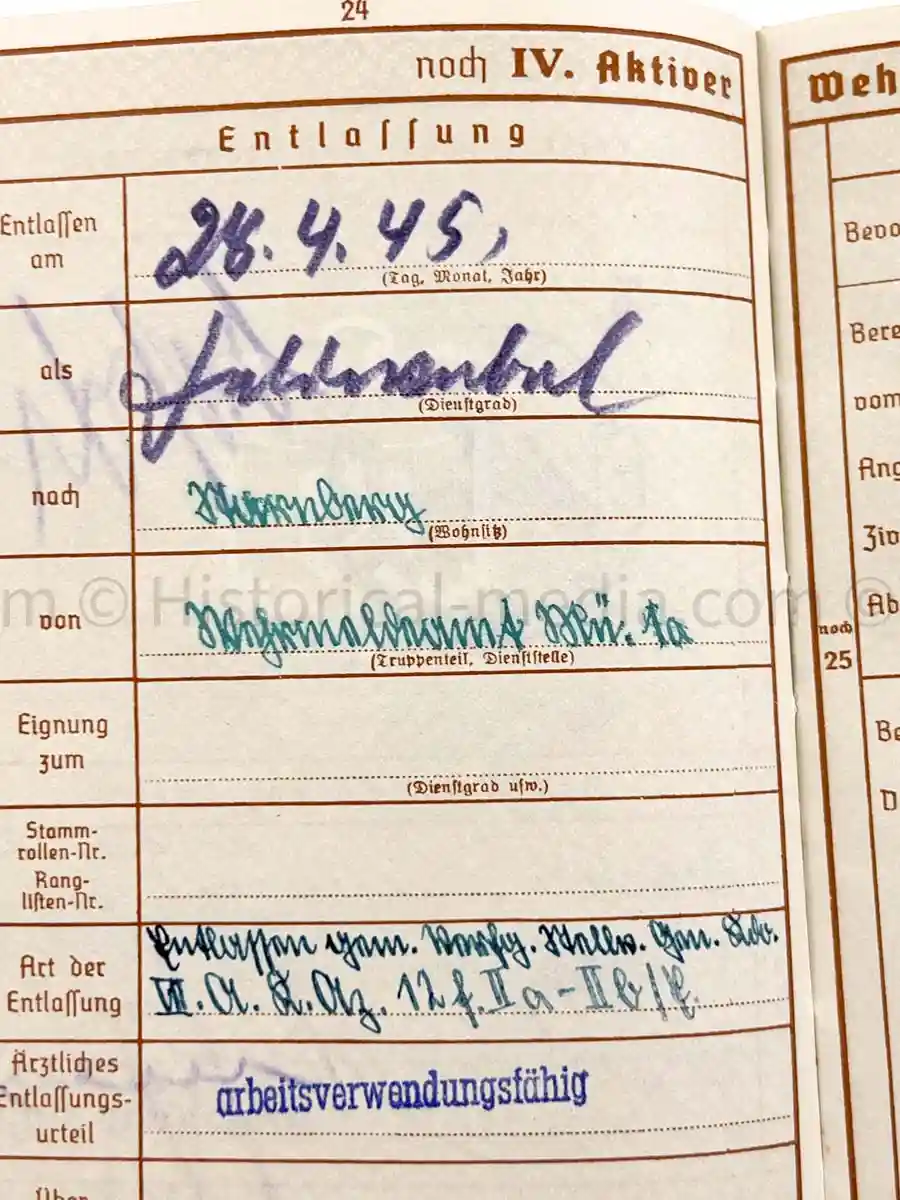 24
noch IV. Aktiver
Weh
Entlassung
Entlassen am
28.4.45,
(Tag, Monat, Jahr)
als
Feldwebel
(Dienstgrad)
nach
(Wohnsitz)
von
Wehrmeldeamt Mü. Ia
(Truppenteil, Dienststelle)
Eignung zum
(Dienstgrad usw.)
Stamm-
rollen-Nr.
Rang-
listen-Nr.
Art der
Entlassung
Entlassen gem. Verfg. Stellv. Gen. Kdo.
VII. A. K. Az. 12 f. II a - II b/
Ärztliches
Entlassungs-
urteil
arbeitsverwendungsfähig
Über
Bevo
Bere
vom
Ang
Ziv
Ab
noch
25
Be
D
© Historical-media.com ©